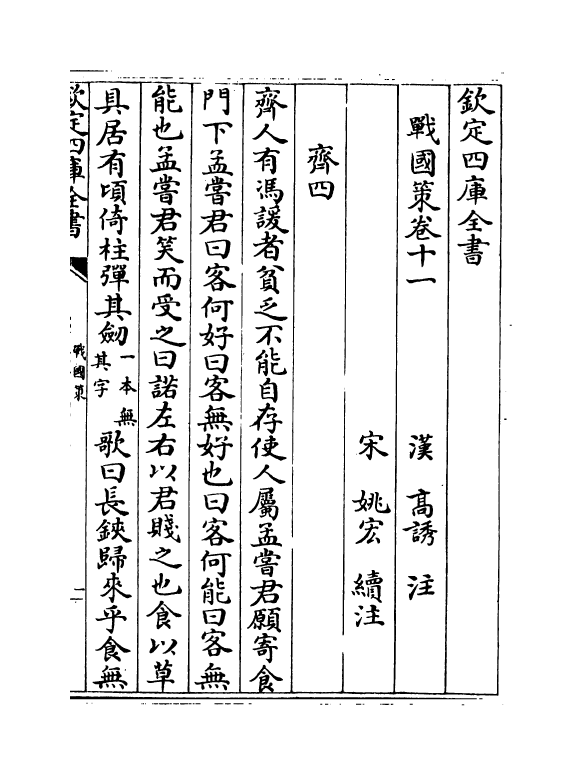 欽定四庫全書
戰國策卷十一
漢 髙誘 注
宋 姚宏 續注
齊四
齊人有馮諼者貧乏不能自存使人屬孟嘗君願寄食
門下孟嘗君曰客何好曰客無好也曰客何能曰客無
能也孟嘗君笑而受之曰諾左右以君賤之也食以草
具居有頃倚柱彈其劒一本無其字歌曰長鋏歸來乎食無
欽定四庫全書
戰國策